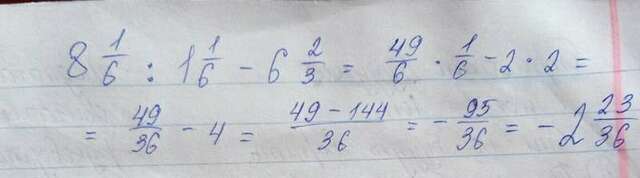 8 1/6 : 1 1/6 - 6 2/3 = 49/6 · 1/6 - 2 · 2 =
= 49/36 - 4 = (49 - 144)/36 = - 95/36 = - 2 23/36